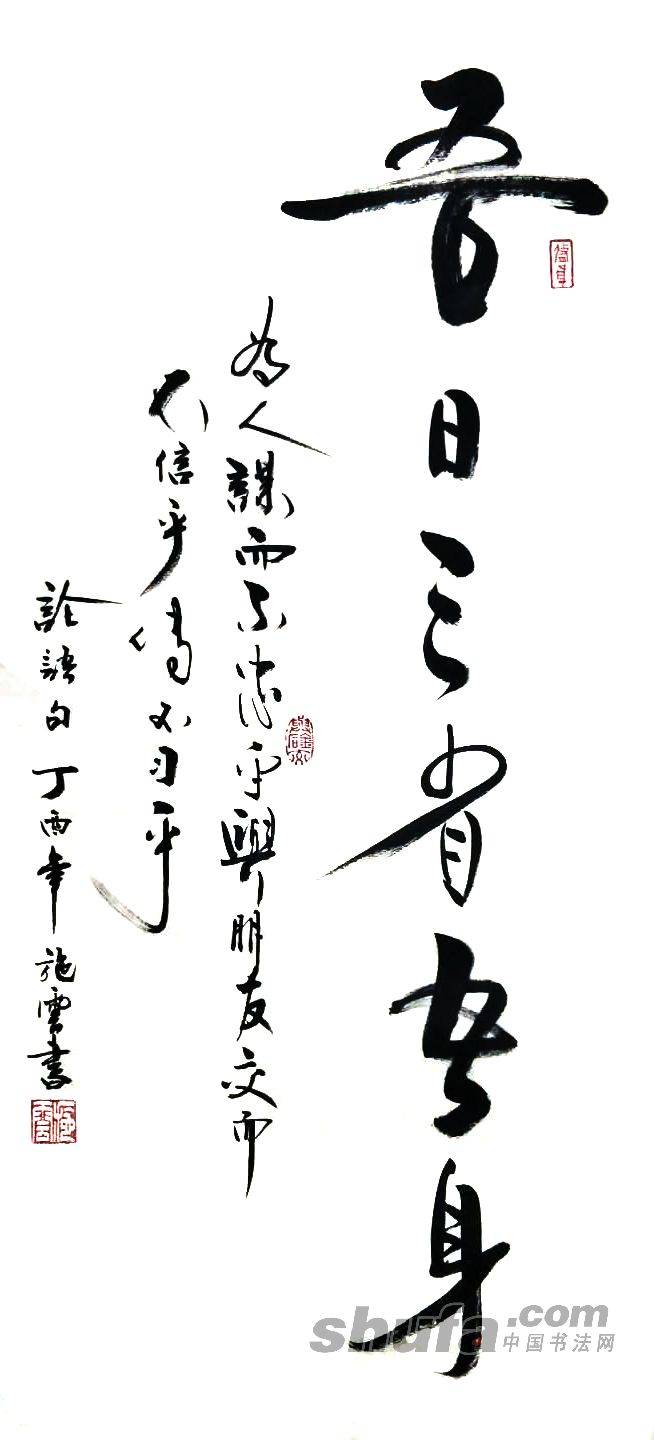 吾日三省吾身
為人謀而不忠乎與朋友交而
不信乎傳不習乎
論語句丁酉年施雲書
shufa.com
中国书法网